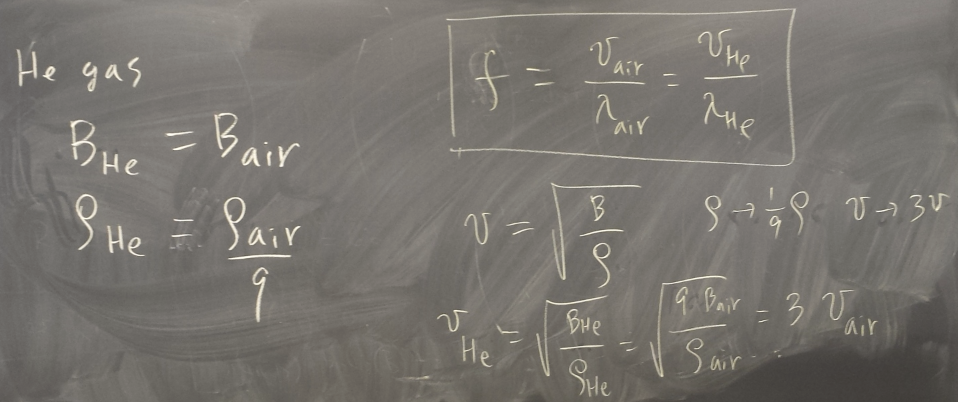 He gas
B_He = B_air
ρ_He = ρ_air/9
f = v_air/λ_air = v_He/λ_He
v = √(B/ρ) ρ → 1/9 ρ v → 3v
v_He = √(B_He/ρ_He) = √(9 B_air/ρ_air) = 3 v_air